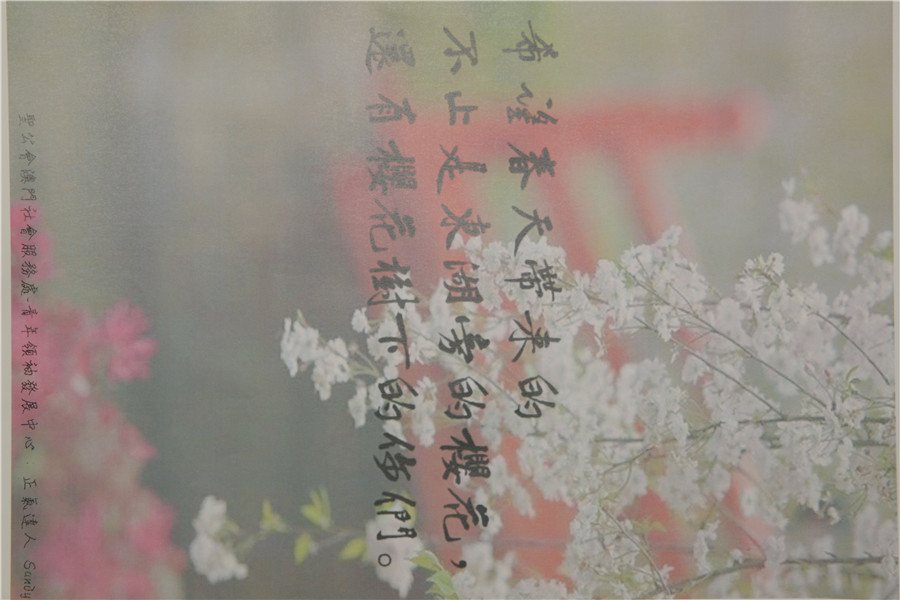 希望春天帶来的
不止是東湖旁的櫻花，
還有櫻花樹下的你們。
聖公會澳門社會服務處-青年領袖發展中心·正氣達人 Sandy